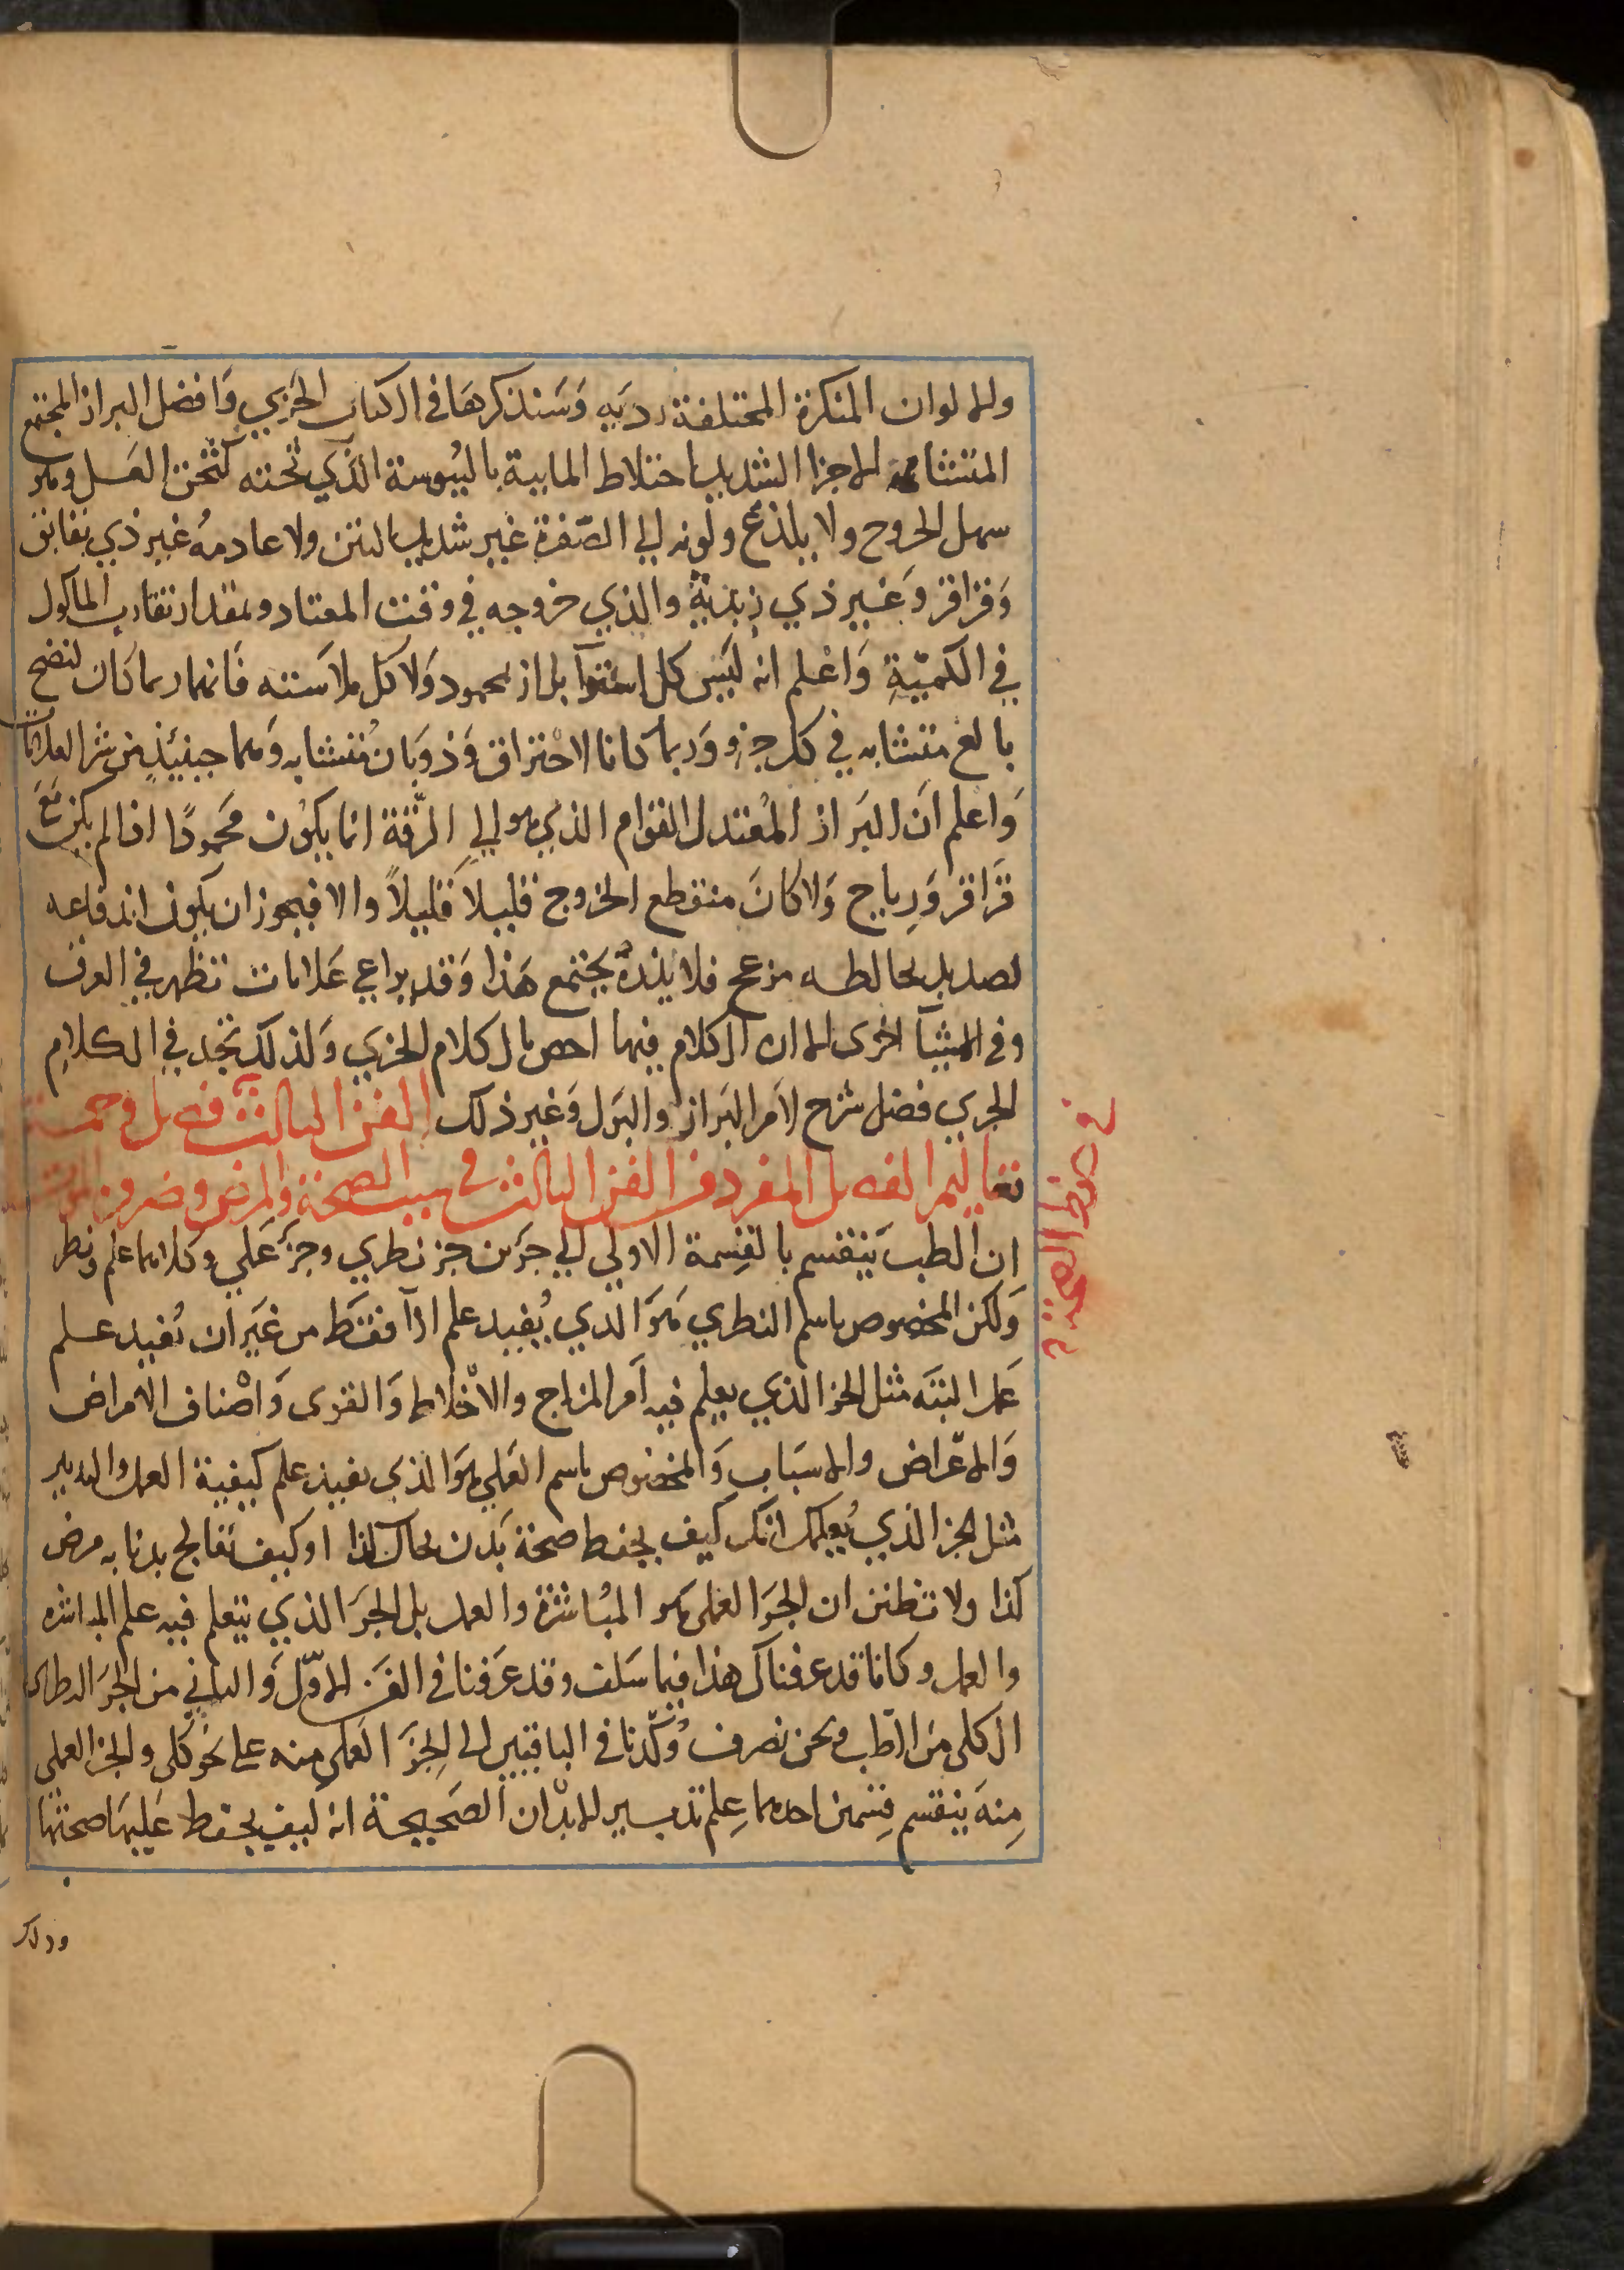 والالوان المنكرة المختلفة رديه وسنذكرها في الكتاب الجزي وافضل البراز المجتمع
المتشابه الاجزا الشديد اختلاط المايية باليبوسة الذي ثخنه كثخن العسل وهو
سهل الخروج ولا يلذع ولونه الي الصفرة غير شديد النتن ولا عادمه غير ذي بقابق
وقراقر وغير ذي زبدية والذي خروجه في وقت المعتاد وبمقدار تقارب الماكول
في الكمية واعلم انه ليس كل استوآ براز محمود ولا كل ملاسته فانهما ربما كان لنضج
بالغ متشابه في كل جزو وربما كانا لاحتراق وذوبان متشابه وهما حينيذ من شر العلامات
واعلم ان البراز المعتدل القوام الذي هو الي الرقة انما يكون محمودا اذا لم يكن مع
قراقر ورياح ولا كان منقطع الخروج قليلا قليلا والا فيجوز ان يكون اندفاعه
لصديد يخالطه مزعج فلا يذره يجتمع هذا وقد يراعي علامات تظهر في العرق
وفي اشيآ اخرى الا ان الكلام فيها اخص بالكلام الجزي ولذلك تجد في الكلام
الجزي فضل شرح لامر البراز والبول وغير ذلك الفن الثالث فصل وخمسة
تعاليم الفصل المفرد من الفن الثالث في سبب الصحة والمرض وضرورة الموت
ان الطب ينقسم بالقسمة الاولي الي جزين جز نظري وجز عملي وكلاهما علم ونظر
ولكن المخصوص باسم النظري هو الذي يفيد علم ارآ فقط من غير ان يفيد علم
عمل البتة مثل الجز الذي يعلم فيه امر المزاج والاخلاط والقوى واصناف الامراض
والاعراض والاسباب والمخصوص باسم العملي هو الذي يفيد علم كيفية العمل والتدبير
مثل الجز الذي يعلمك انك كيف يحفظ صحة بدن بحال كذا او كيف تعالج بدنا به مرض
كذا ولا تظنن ان الجز العملى هو المباشرة والعمل بل الجز الذي يتعلم فيه علم المباشره
والعمل وكانا قد عرفناك هذا فيما سلف وقد عرفنا في الفن الاول والثاني من الجز النظرى
الكلى من الطب ونحن نصرف وكدنا في الباقيين الى الجز العملى منه على نحو كلى والجز العملى
منه ينقسم قسمين احدهما علم تدبير الابدان الصحيحة انه كيف يحفظ عليها صحتها
وذلك
في حفظ الصحة